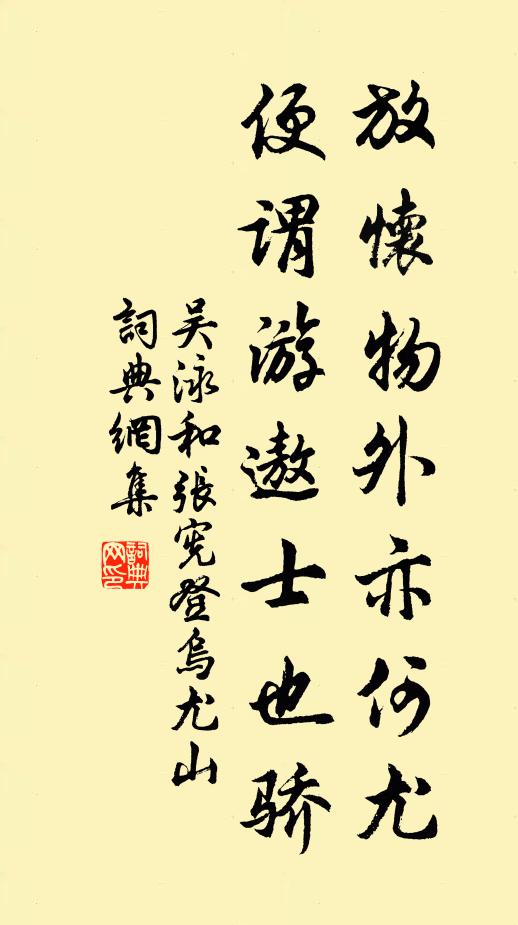 放懷物外亦何尤
便谓游遨士也骄
吴泳和張宪登烏尤山
詞典網集
詞典網印